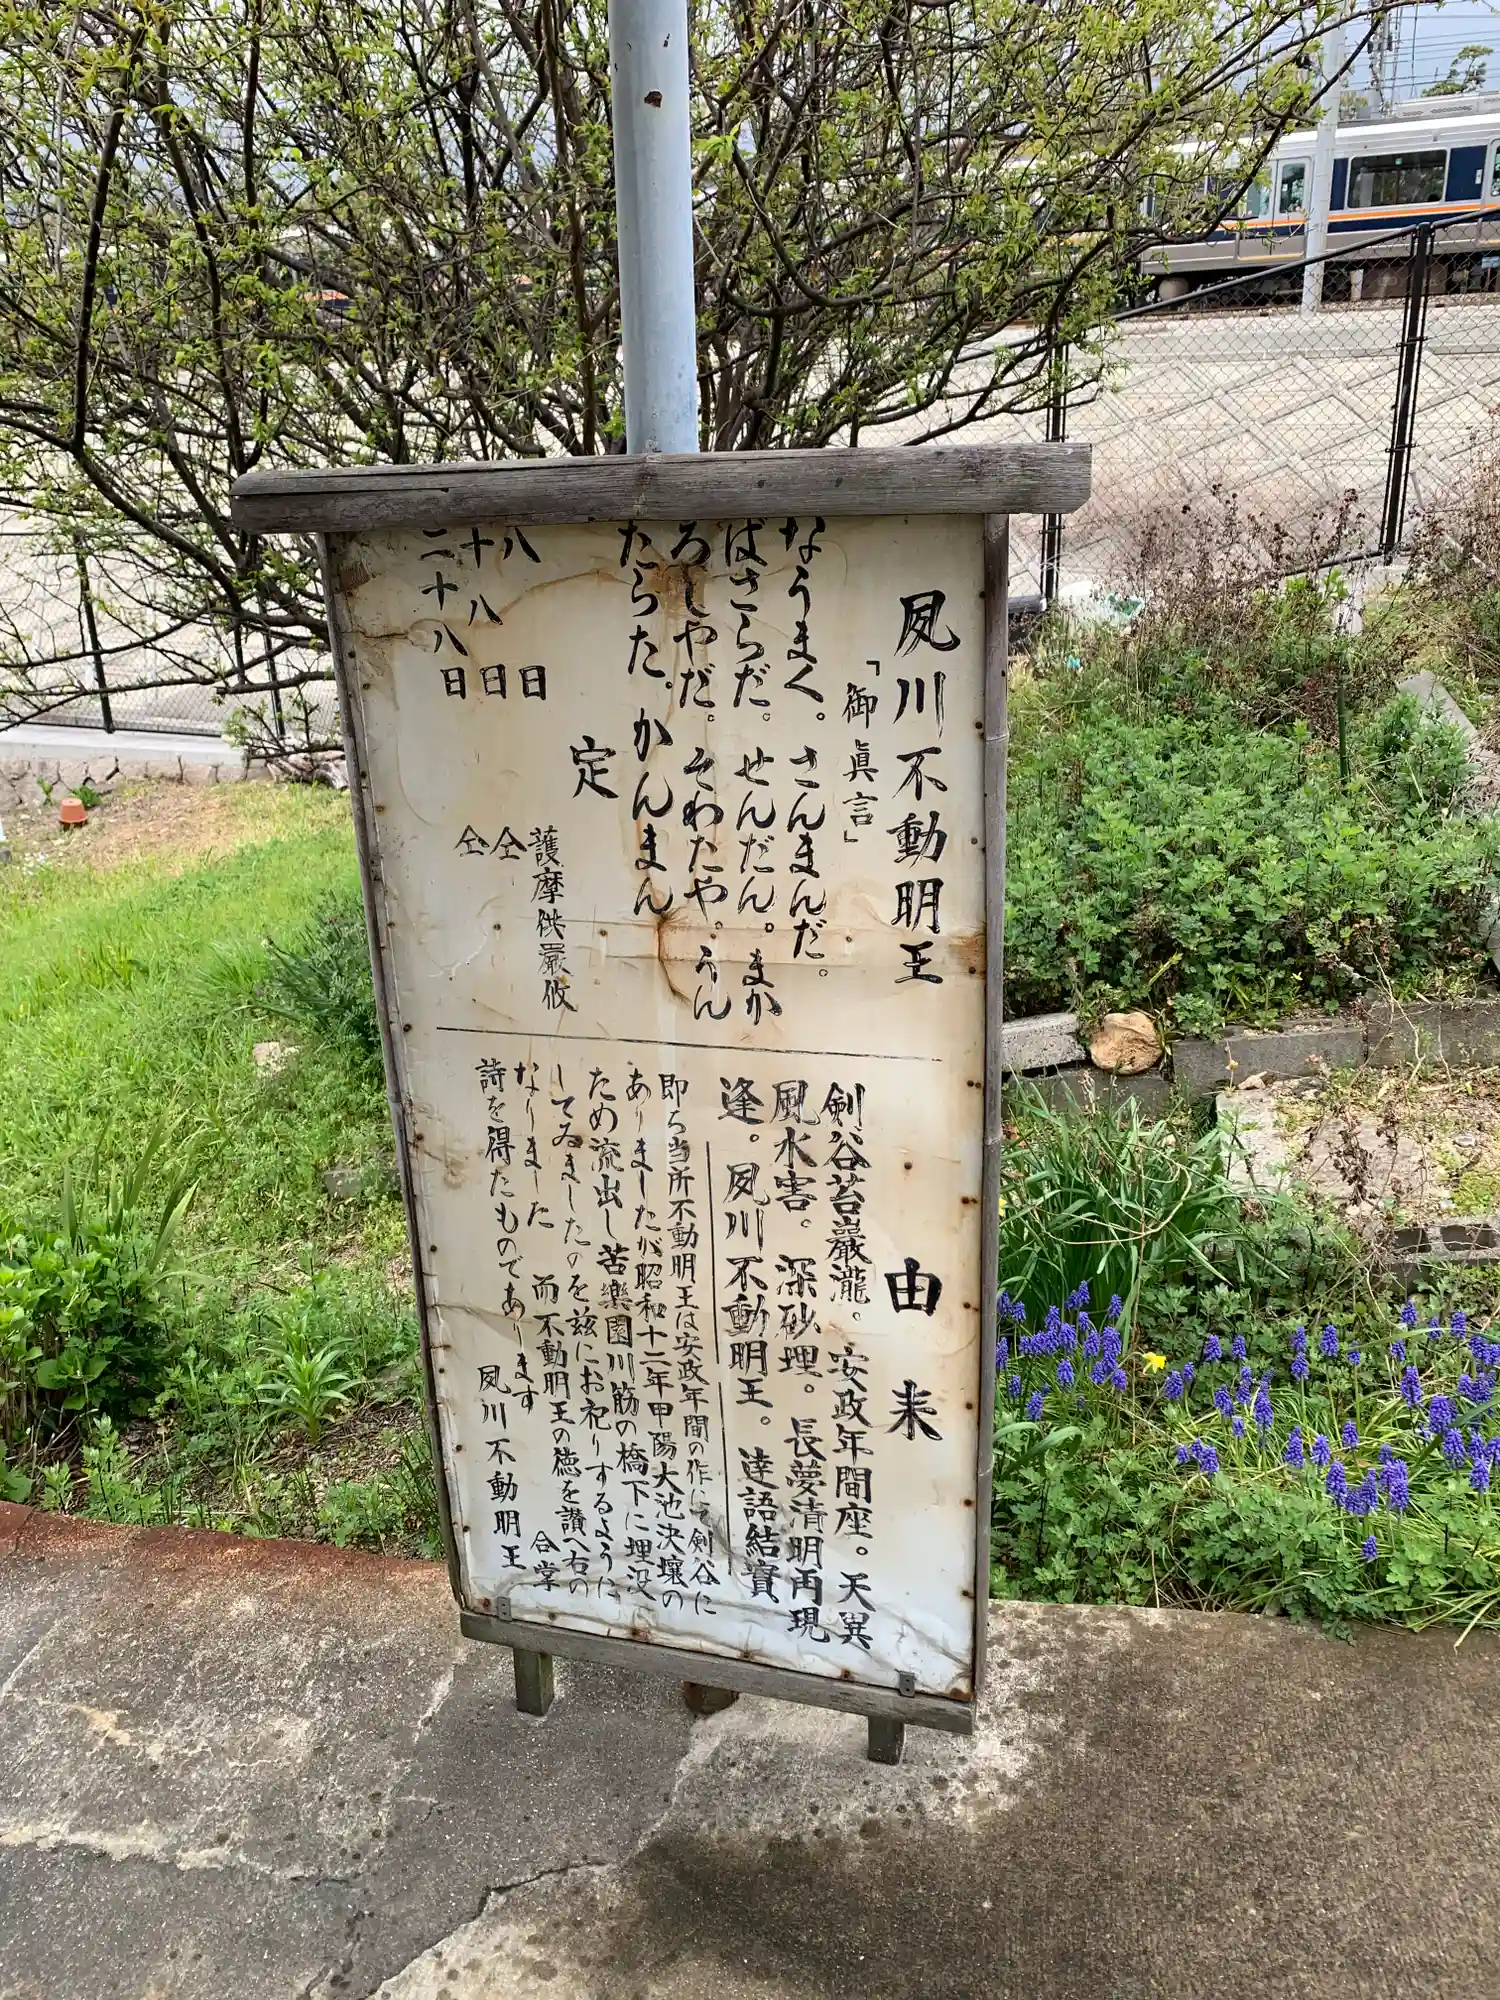 夙川不動明王
「御眞言」
なうまく。さんまんだ。
ばさらだ。せんだん。まか
ろしやだ。そわたや。うん
たらた。かんまん
定
八日 護摩供嚴修
十八日 仝
二十八日 仝
由来
剣谷苔巖瀧。安政年間座。天異
風水害。深砂埋。長夢清明再現
逢。夙川不動明王。達語結實
即ち当所不動明王は安政年間の作にて剣谷に
ありましたが昭和十二年甲陽大池決壊の
ため流出し苦樂園川筋の橋下に埋没
してゐましたのを茲にお祀りするように
なりました 而不動明王の徳を讃へ右の
詩を得たものであります
夙川不動明王
合掌